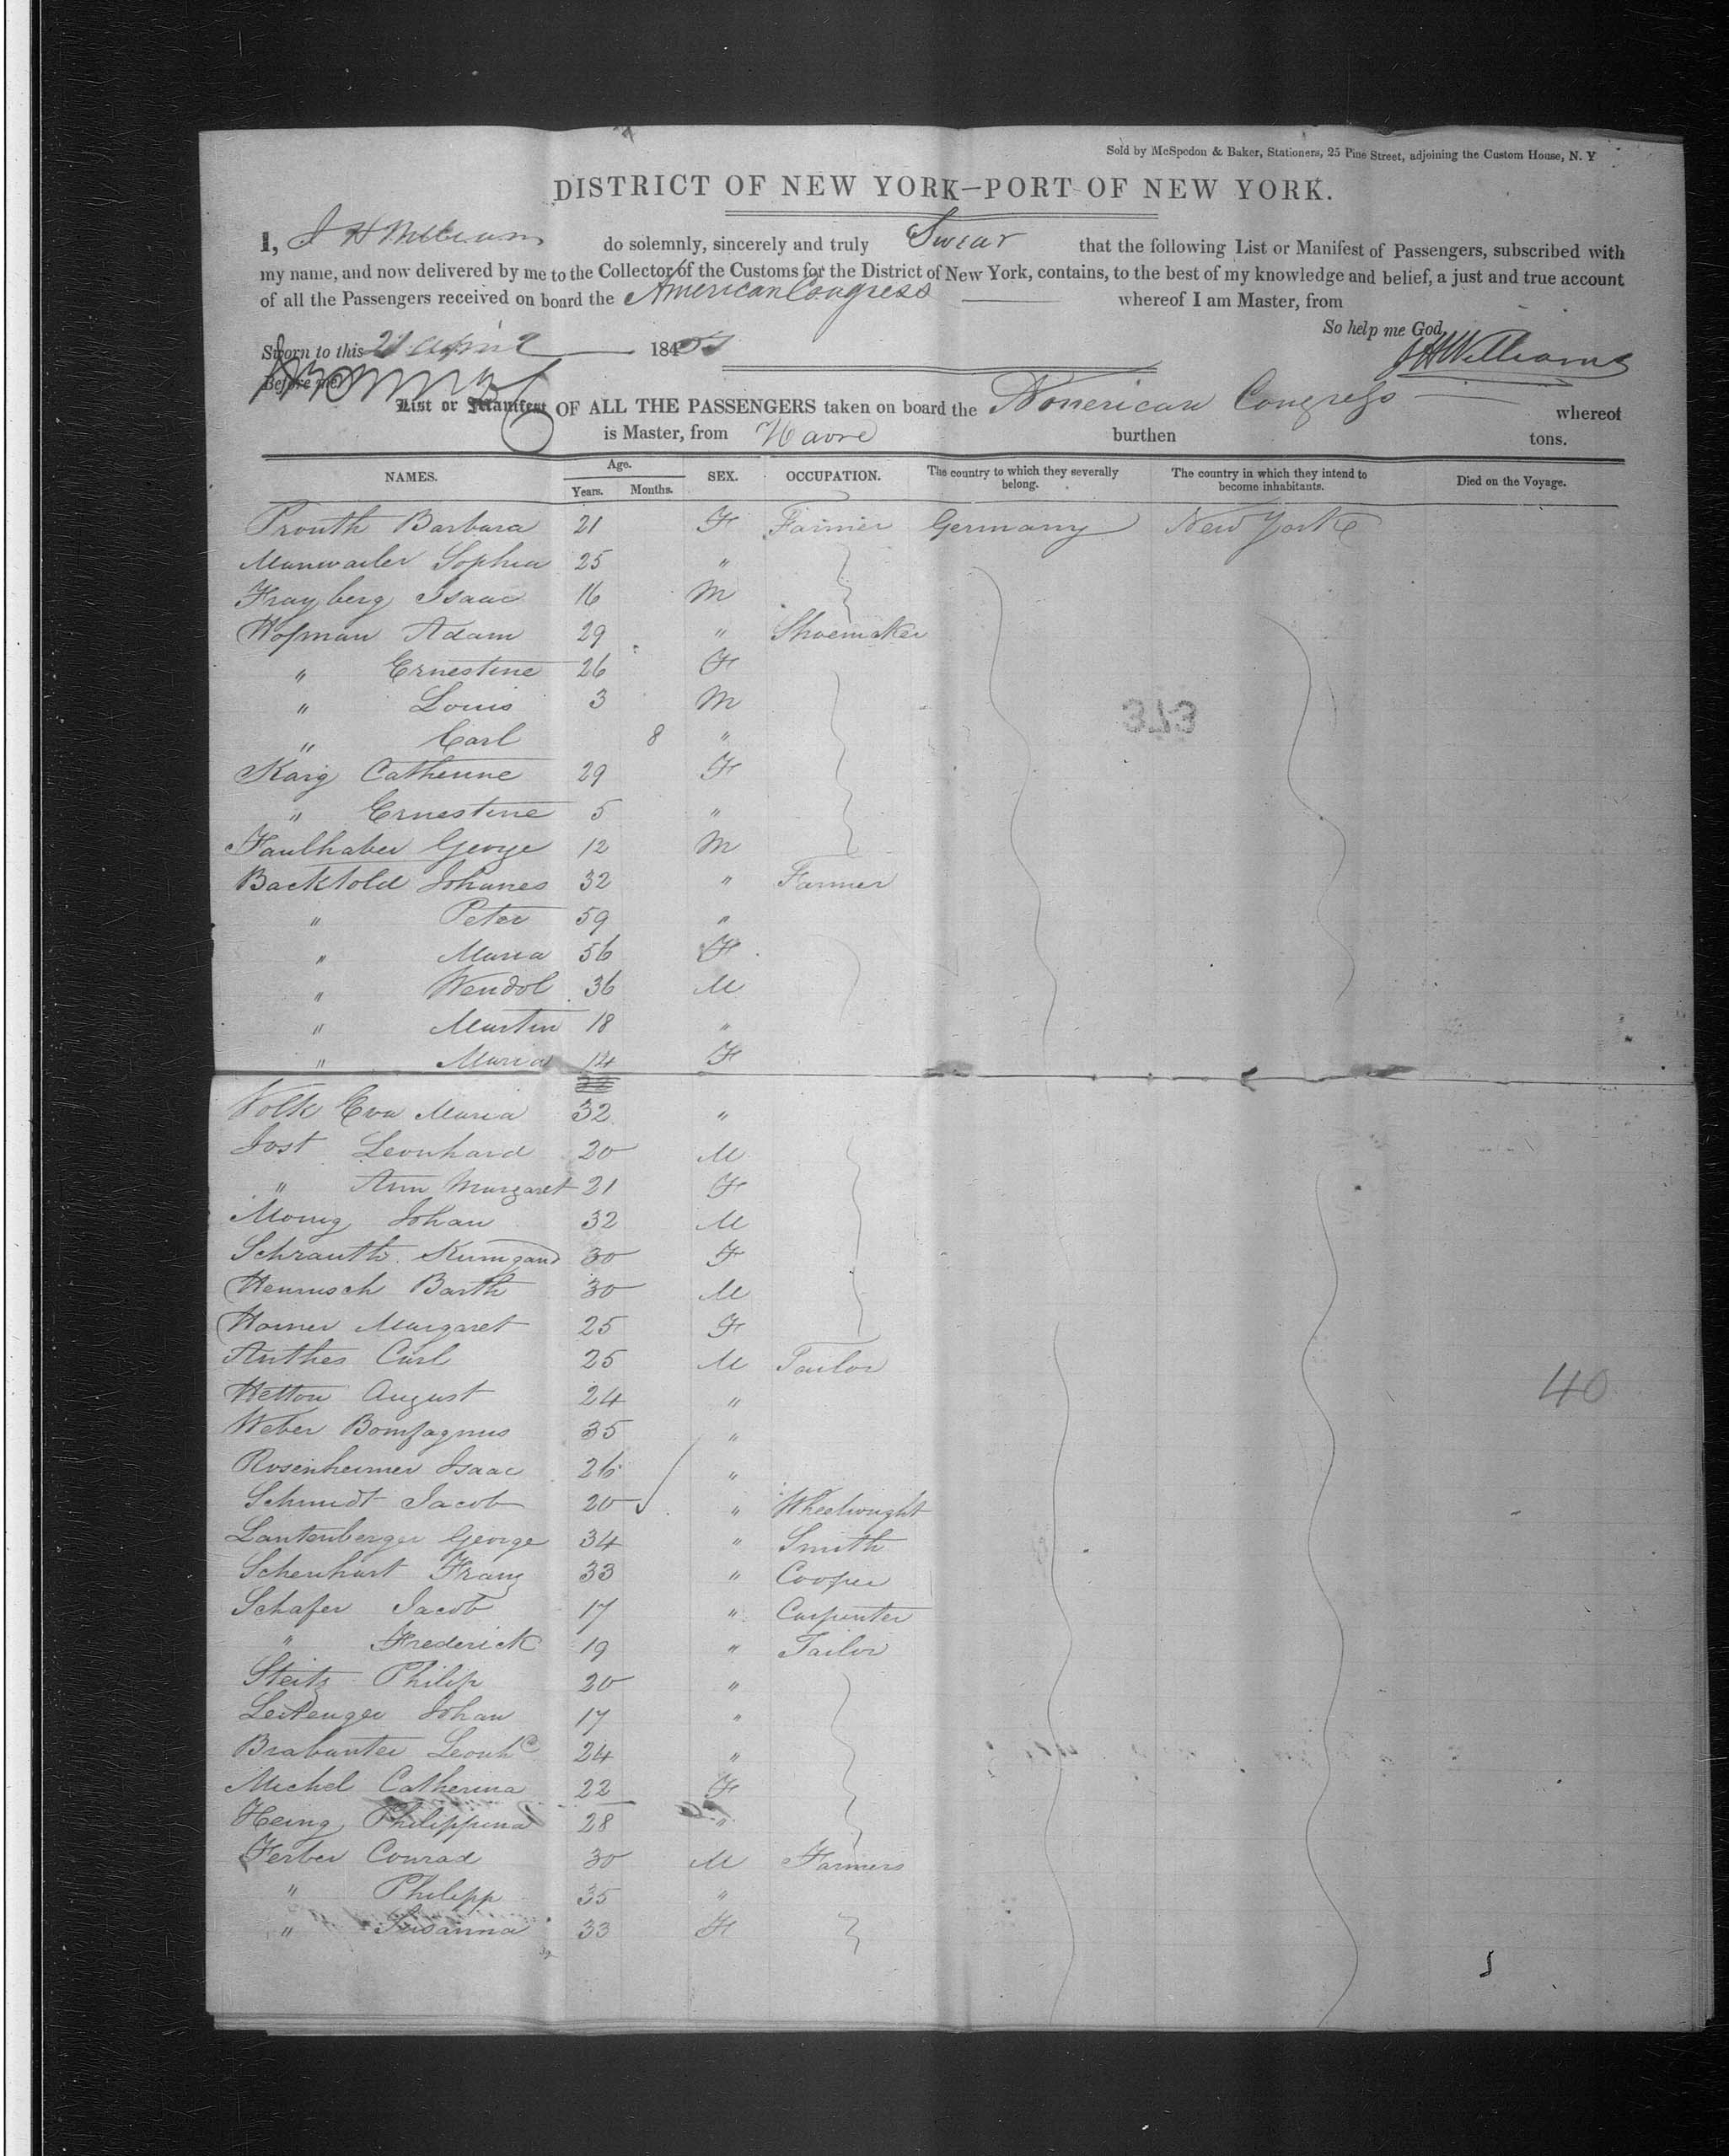 Sold by McSpedon & Baker, Stationers, 25 Pine Street, adjoining the Custom House, N. Y
DISTRICT OF NEW YORK—PORT OF NEW YORK.
I, J H Williams do solemnly, sincerely and truly Swear that the following List or Manifest of Passengers, subscribed with
my name, and now delivered by me to the Collector of the Customs for the District of New York, contains, to the best of my knowledge and belief, a just and true account
of all the Passengers received on board the American Congress whereof I am Master, from
So help me God
Sworn to this 21 April 184 51 J H Williams
Before me
List or Manifest OF ALL THE PASSENGERS taken on board the American Congress whereof
is Master, from Havre burthen tons.
NAMES. Age. Years. Months. SEX. OCCUPATION. The country to which they severally belong. The country in which they intend to become inhabitants. Died on the Voyage.
Prouth Barbara 21 F Farmer Germany New York
Munwailer Sophia 25 "
Frayberg Isaac 16 M
Hofman Adam 29 " Shoemaker
" Ernestine 26 F
" Louis 3 M
373
" Carl 8 "
Karg Catherine 29 F
" Ernestine 5 "
Faulhaber George 12 M
Backtold Johanes 32 " Farmer
" Peter 59 "
" Maria 56 F
" Wendol 36 M
" Martin 18 "
" Maria 14 F
Volk Eva Maria 32 "
Jost Leonhard 20 M
" Ann Margaret 21 F
Monig Johan 32 M
Schrauth Kunigand 30 F
Henrusch Barth 30 M
Horner Margaret 25 F
Anthes Carl 25 M Tailor
Hetton August 24 "
40
Weber Bomfagnus 35 "
Rosenheimer Isaac 26 "
Schmidt Jacob 20 " Wheelwright
Lautenberger George 34 " Smith
Schenhart Franz 33 " Cooper
Schafer Jacob 17 " Carpenter
" Frederick 19 " Tailor
Steitz Philip 20 "
Johan 17 "
Brabanter Leonhd 24 "
Michel Catherina 22 F
Heing Philippina 28 "
Ferber Conrad 30 M Farmers
" Philipp 35 "
" Susanna 33 F